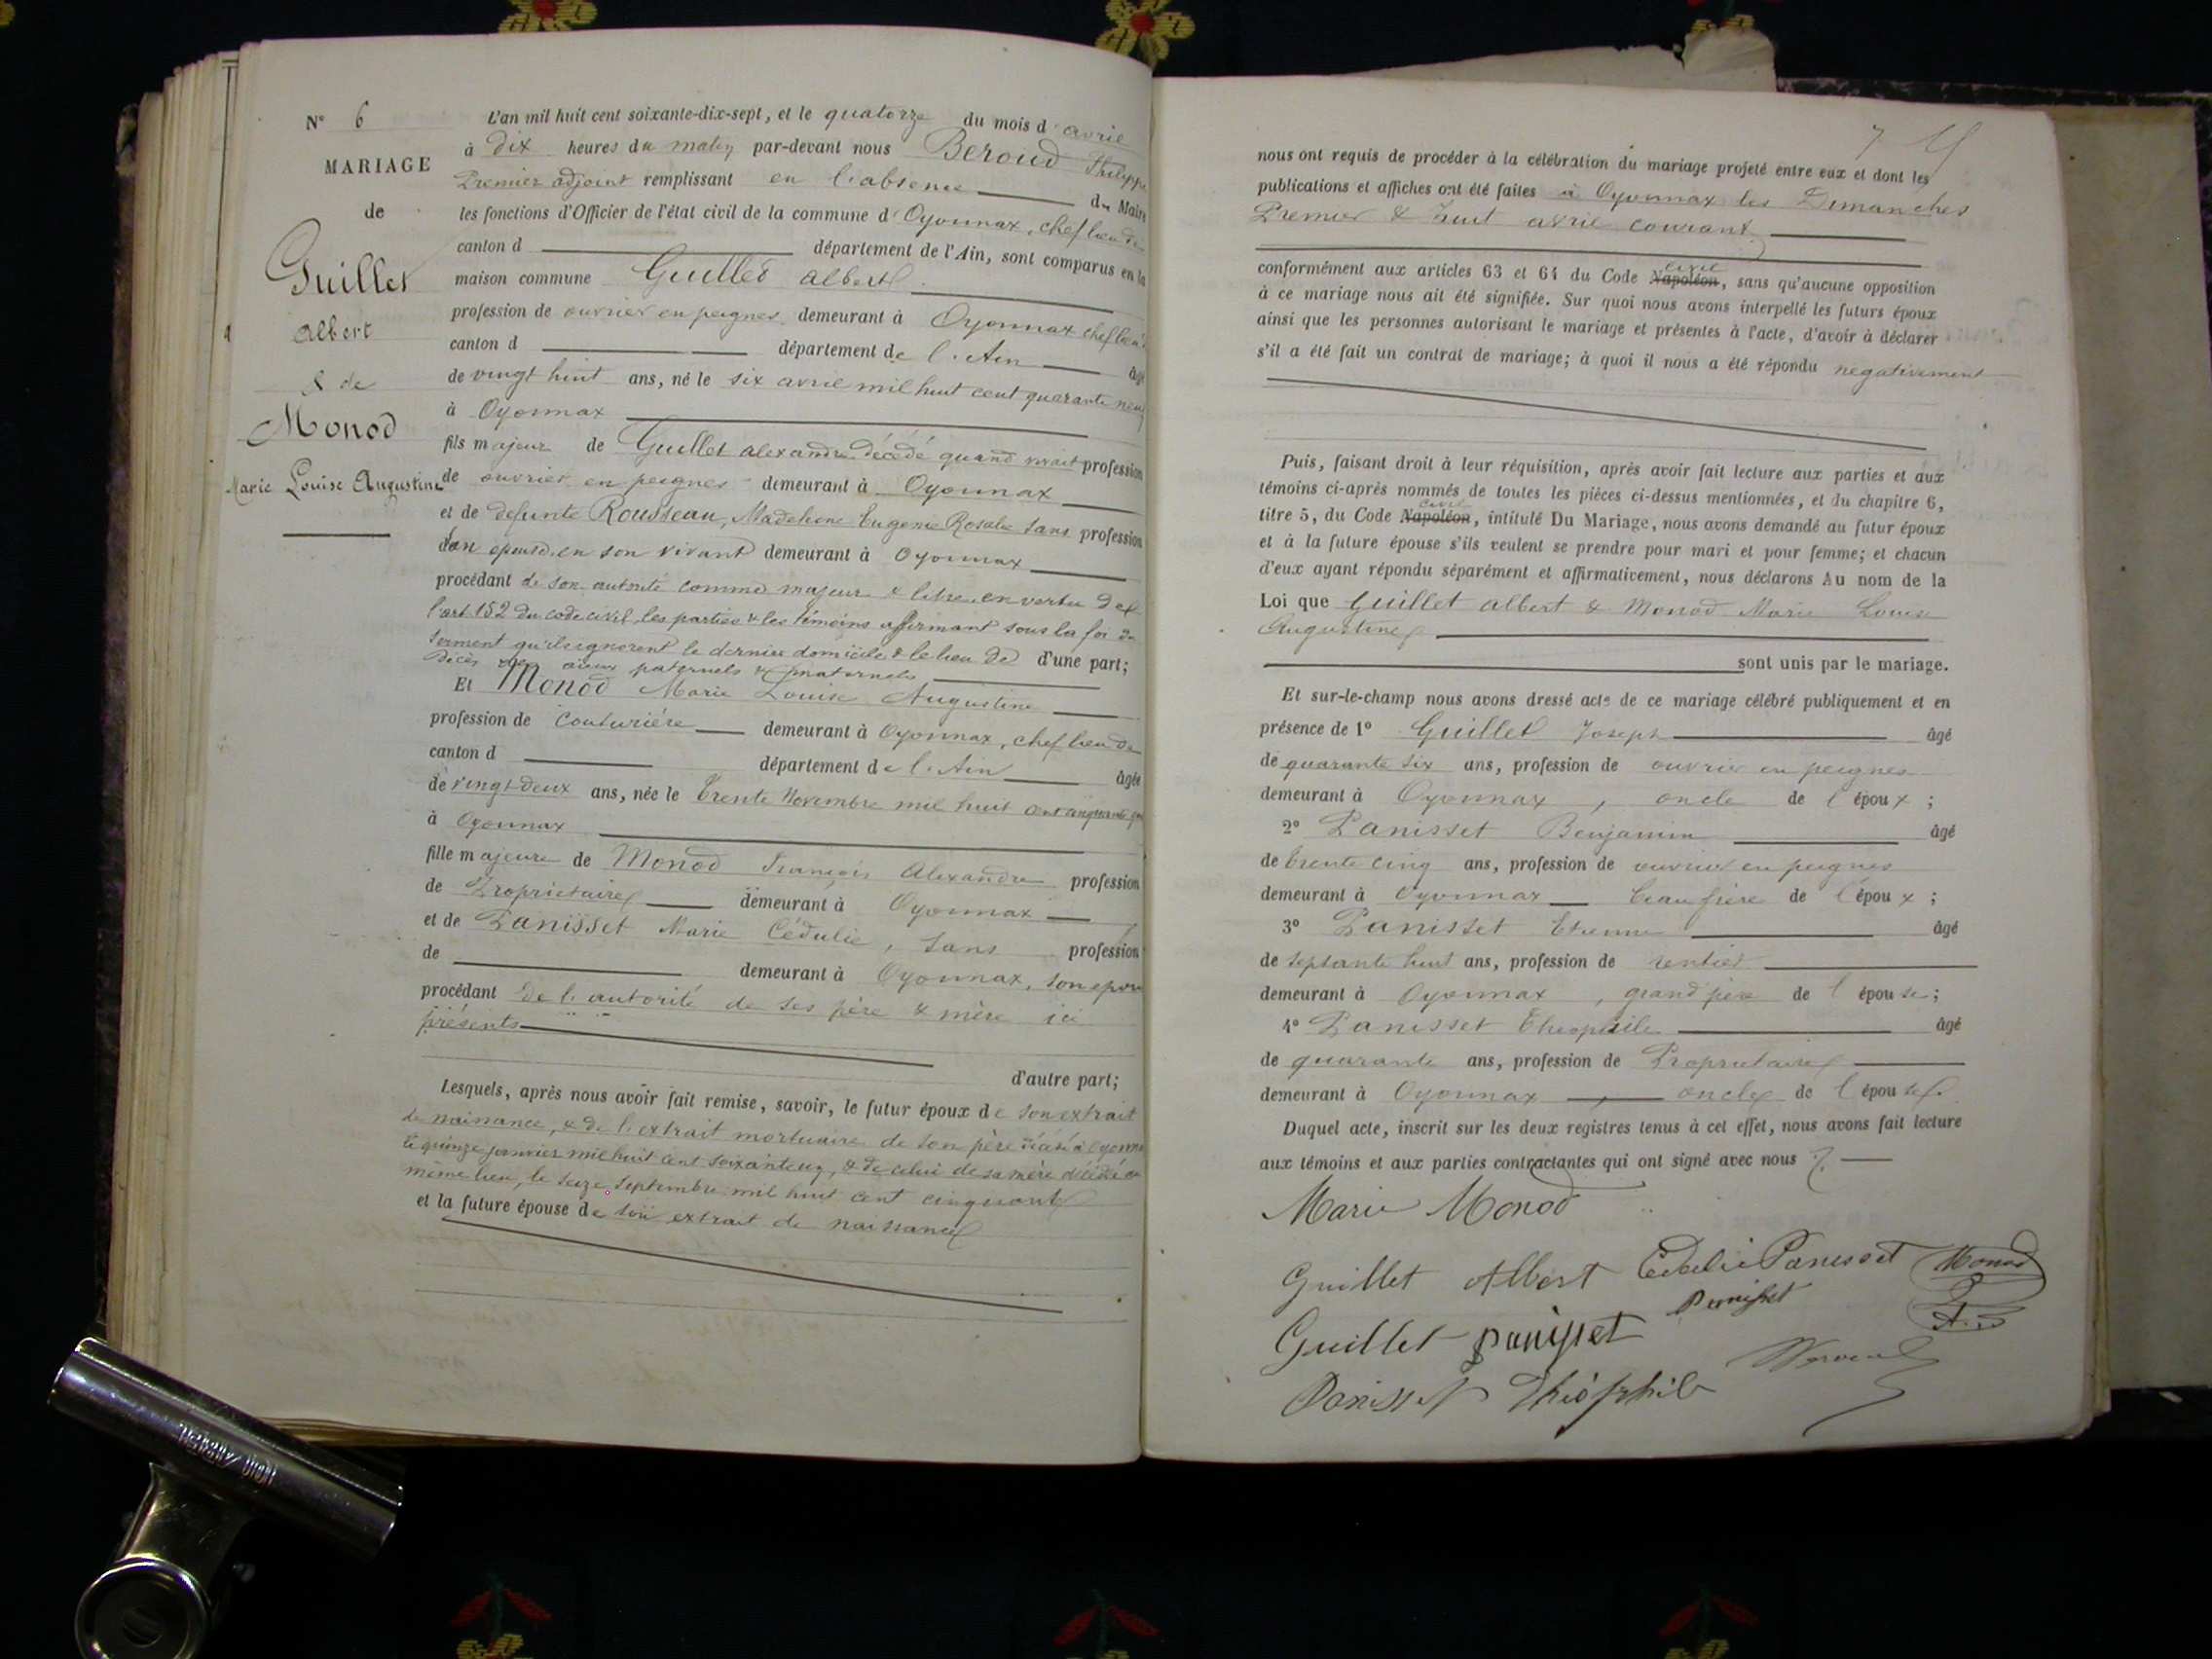 N° 6
MARIAGE
de
Guillet
Albert
& de
Monod
Marie Louise Augustine
L'an mil huit cent soixante-dix-sept, et le quatorze du mois d'avril
à dix heures du matin par-devant nous Beroud Philippe
Premier adjoint remplissant en l'absence du Maire
les fonctions d'Officier de l'état civil de la commune d'Oyonnax, chef lieu de
canton d département de l'Ain, sont comparus en la
maison commune Guillet Albert
profession de ouvrier en peignes demeurant à Oyonnax chef lieu
canton d département de l'Ain âgé
de vingt huit ans, né le six avril mil huit cent quarante neuf
à Oyonnax
fils majeur de Guillet Alexandre décédé quand vivait profession
de ouvrier en peignes demeurant à Oyonnax
et de défunte Rousseau, Madeleine Eugenie Rosalie sans profession
son épouse en son vivant demeurant à Oyonnax
procédant de son autorité comme majeur & libre en vertu de
l'art. 152 du code civil, les parties & les témoins affirmant sous la foi du
serment qu'ils ignorent le dernier domicile & le lieu de d'une part;
décès des aïeux paternels & maternels
Et Monod Marie Louise Augustine
profession de couturière demeurant à Oyonnax, chef lieu de
canton d département de l'Ain âgée
de vingt-deux ans, née le trente Novembre mil huit cent cinquante
à Oyonnax
fille majeure de Monod François Alexandre profession
de Propriétaire demeurant à Oyonnax
et de Panisset Marie Cédulie, sans profession
de demeurant à Oyonnax, son épouse
procédant de l'autorité de ses père & mère ici
présents
d'autre part;
Lesquels, après nous avoir fait remise, savoir, le futur époux de son extrait
de naissance, & de l'extrait mortuaire de son père décédé à Oyonnax
le quinze janvier mil huit cent soixante, & de celui de sa mère décédée
même lieu, le seize septembre mil huit cent cinquante
et la future épouse de son extrait de naissance
7
nous ont requis de procéder à la célébration du mariage projeté entre eux et dont les
publications et affiches ont été faites à Oyonnax les Dimanches
Premier & huit avril courant
civil
conformément aux articles 63 et 64 du Code Napoléon, sans qu'aucune opposition
à ce mariage nous ait été signifiée. Sur quoi nous avons interpellé les futurs époux
ainsi que les personnes autorisant le mariage et présentes à l'acte, d'avoir à déclarer
s'il a été fait un contrat de mariage; à quoi il nous a été répondu négativement
Puis, faisant droit à leur réquisition, après avoir fait lecture aux parties et aux
témoins ci-après nommés de toutes les pièces ci-dessus mentionnées, et du chapitre 6,
civil
titre 5, du Code Napoléon, intitulé Du Mariage, nous avons demandé au futur époux
et à la future épouse s'ils veulent se prendre pour mari et pour femme; et chacun
d'eux ayant répondu séparément et affirmativement, nous déclarons Au nom de la
Loi que Guillet Albert & Monod Marie Louise
Augustine
sont unis par le mariage.
Et sur-le-champ nous avons dressé acte de ce mariage célébré publiquement et en
présence de 1° Guillet Joseph âgé
de quarante six ans, profession de ouvrier en peignes
demeurant à Oyonnax, oncle de l'époux;
2° Panisset Benjamin âgé
de trente cinq ans, profession de ouvrier en peignes
demeurant à Oyonnax beau frère de l'époux;
3° Panisset Etienne âgé
de septante huit ans, profession de rentier
demeurant à Oyonnax, grand'père de l'épouse;
4° Panisset Théophile âgé
de quarante ans, profession de Propriétaire
demeurant à Oyonnax oncle de l'épouse.
Duquel acte, inscrit sur les deux registres tenus à cet effet, nous avons fait lecture
aux témoins et aux parties contractantes qui ont signé avec nous
Marie Monod
Guillet Albert Cédulie Panisset Monod
Panisset
Guillet Panisset
Panisset Théophile